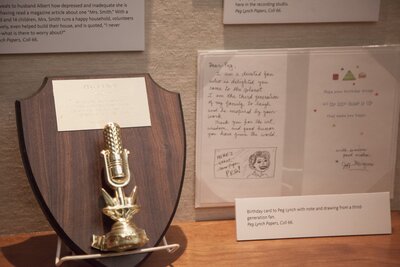 veals to husband Albert how depressed and inadequate she is
having read a magazine article about one "Mrs. Smith." With a
d and 14 children, Mrs. Smith runs a happy household, volunteers
vely, even helped build their house, and is quoted, "I never
what is there to worry about?"
Peg Lynch Papers, Coll 66.
here in the recording studio.
Peg Lynch Papers, Coll 66.
Dear Peg,
I am a devoted fan
who is delighted you
came to the planet.
I am the third generation
of my family to laugh
and be inspired by your
work.
Thank you for the wit,
wisdom, and good humor
you have given the world.
PEG!
Hope your birthday
Birthday card to Peg Lynch with note and drawing from a third-
generation fan.
Peg Lynch Papers, Coll 66.